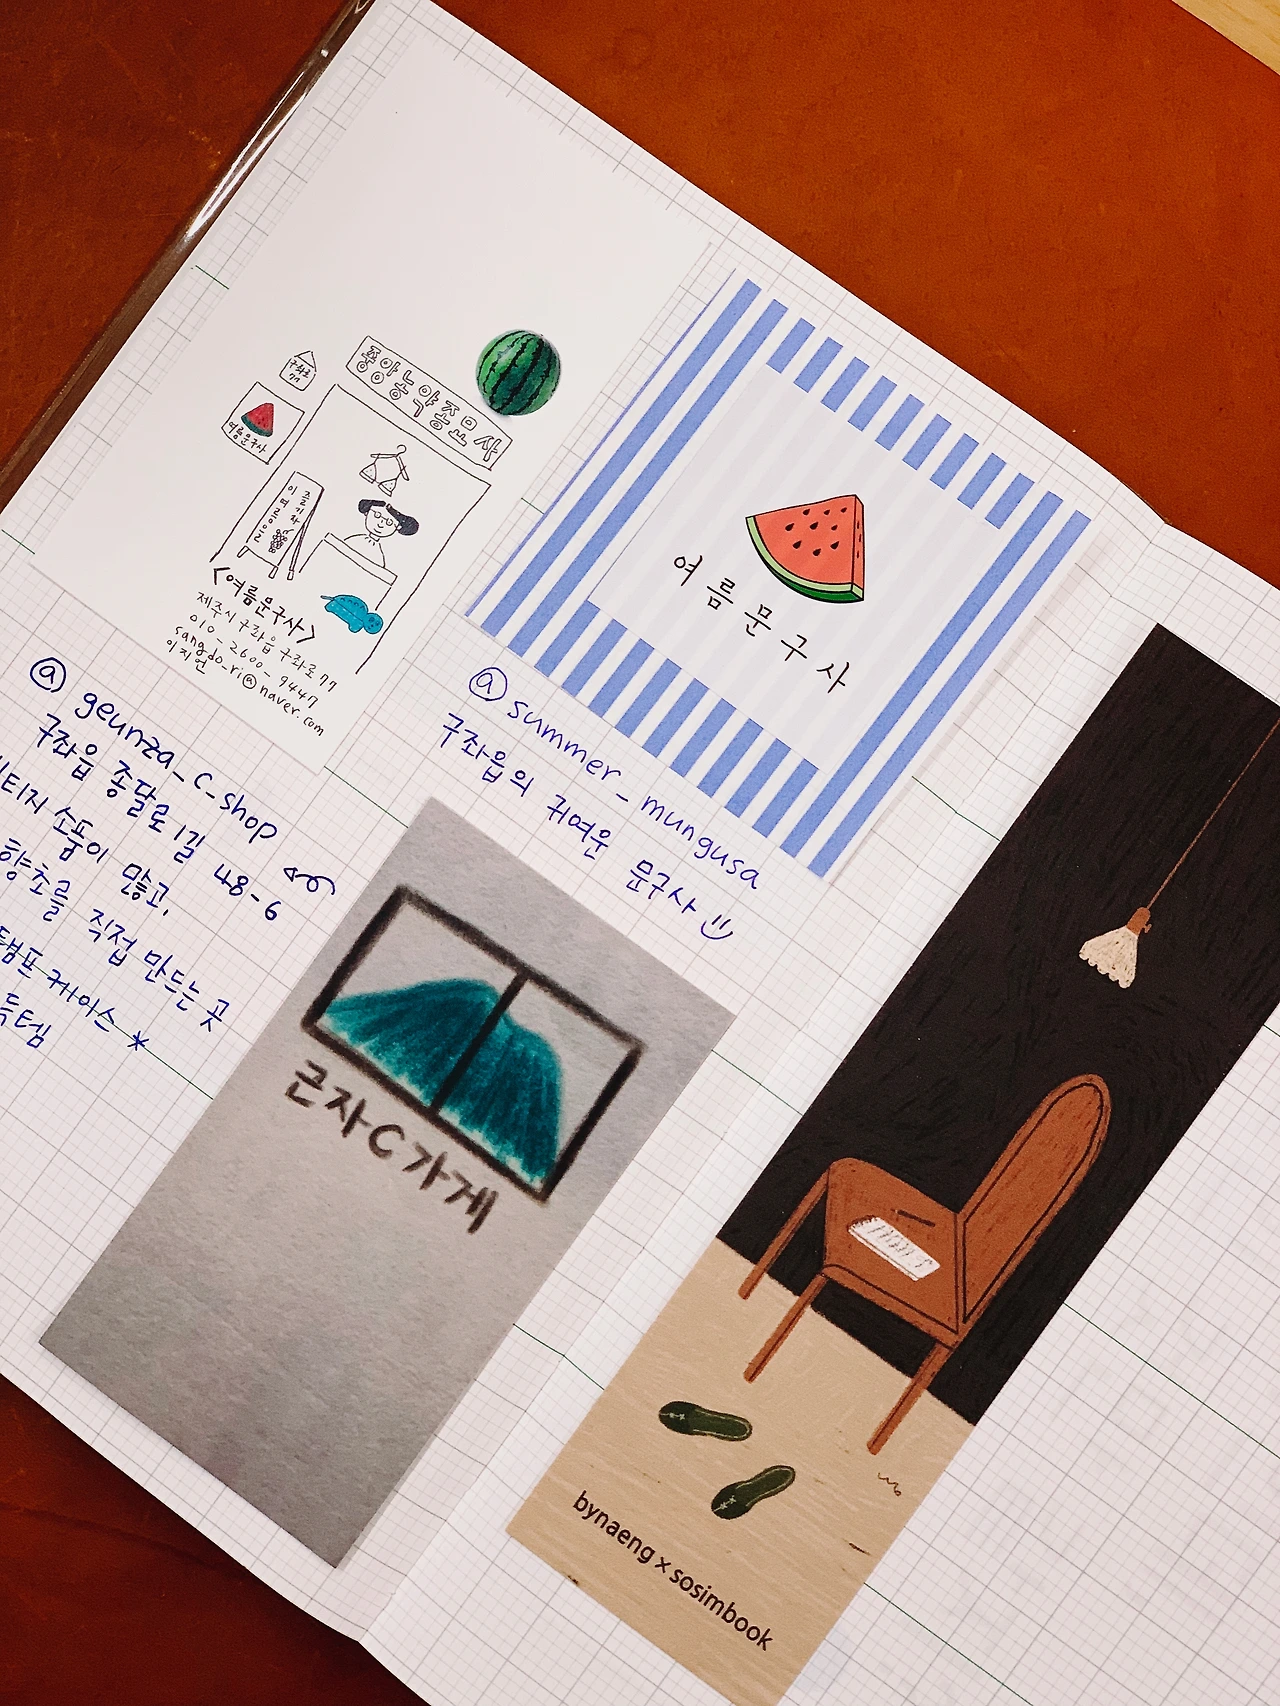 중앙농약종묘사
구좌로
77
여름문구사
즐기자
이 여름을
<여름문구사>
제주시 구좌읍 구좌로77
010-2600-9447
sangdo_ri@naver.com
이지언
여름문구사
@ geunza_c_shop
구좌읍 종달로1길 48-6
소품이 많고,
향초를 직접 만드는 곳
케이스 *
득템
@ summer_mungusa
구좌읍의 귀여운 문구사
근자C가게
bynaeng × sosimbook